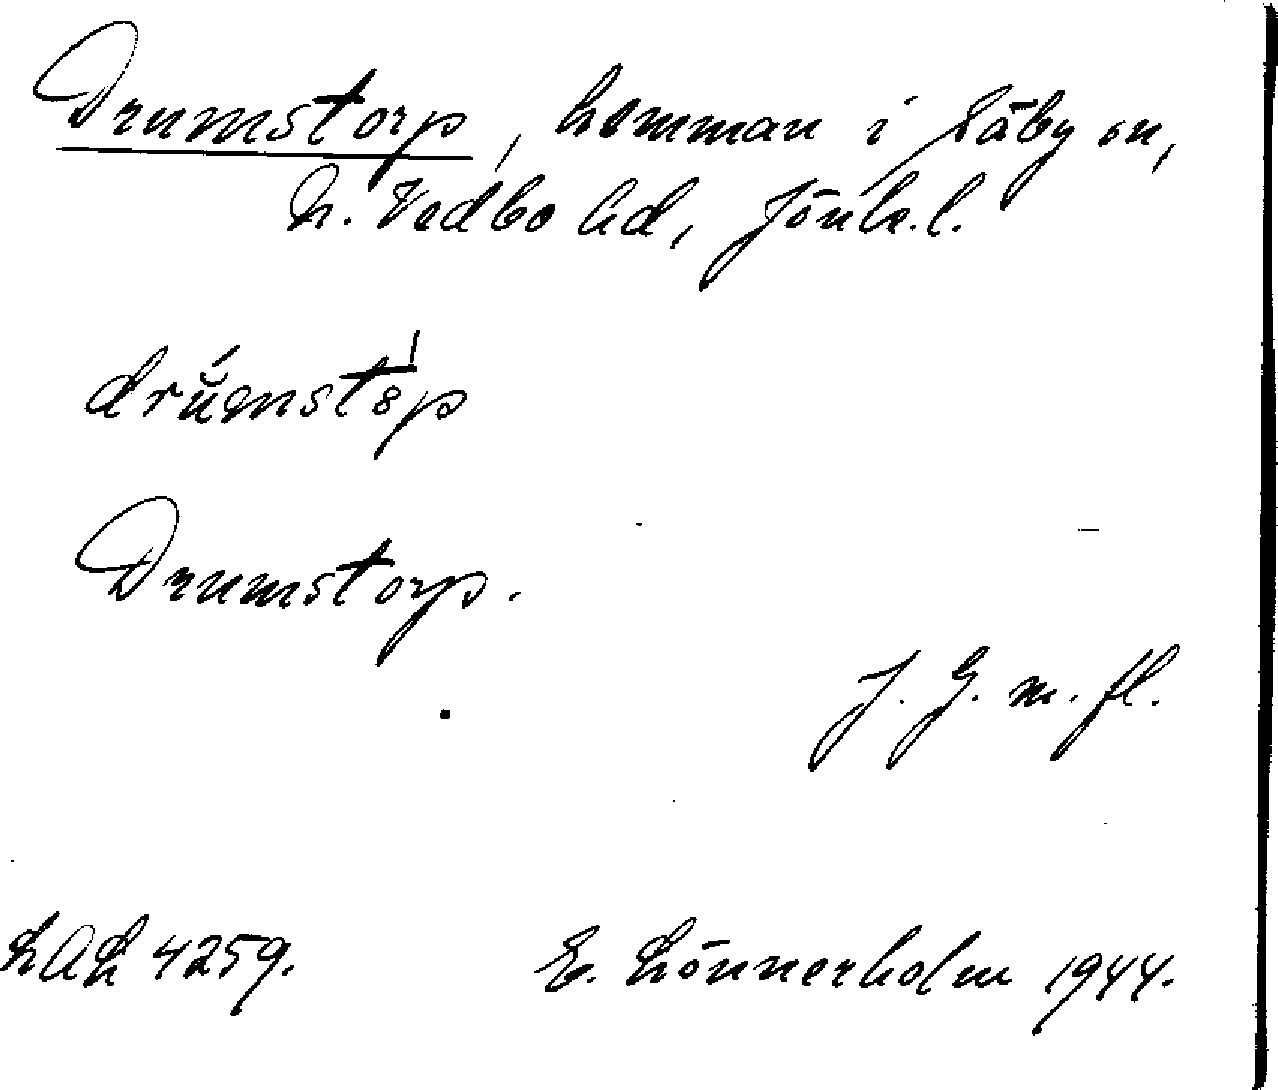 Drumstorp, hemman i Säby sn,
N. Vedbo hd, Jönk.l.
drŭ́mstȯp
Drumstorp.
J. G. m. fl.
LAL 4259.
E. Lönnerholm 1944.